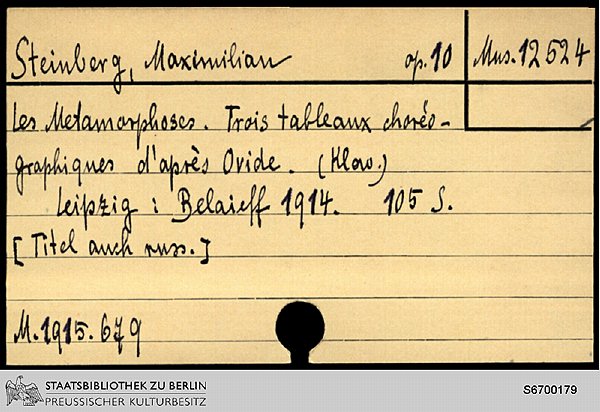 Steinberg, Maximilian op. 10 Mus. 12524
Les Metamorphoses. Trois tableaux choréo-
graphiques d'après Ovide. (Klav.)
Leipzig : Belaieff 1914. 105 S.
[Titel auch russ.]
M. 1915. 679
STAATSBIBLIOTHEK ZU BERLIN
PREUSSISCHER KULTURBESITZ
S6700179